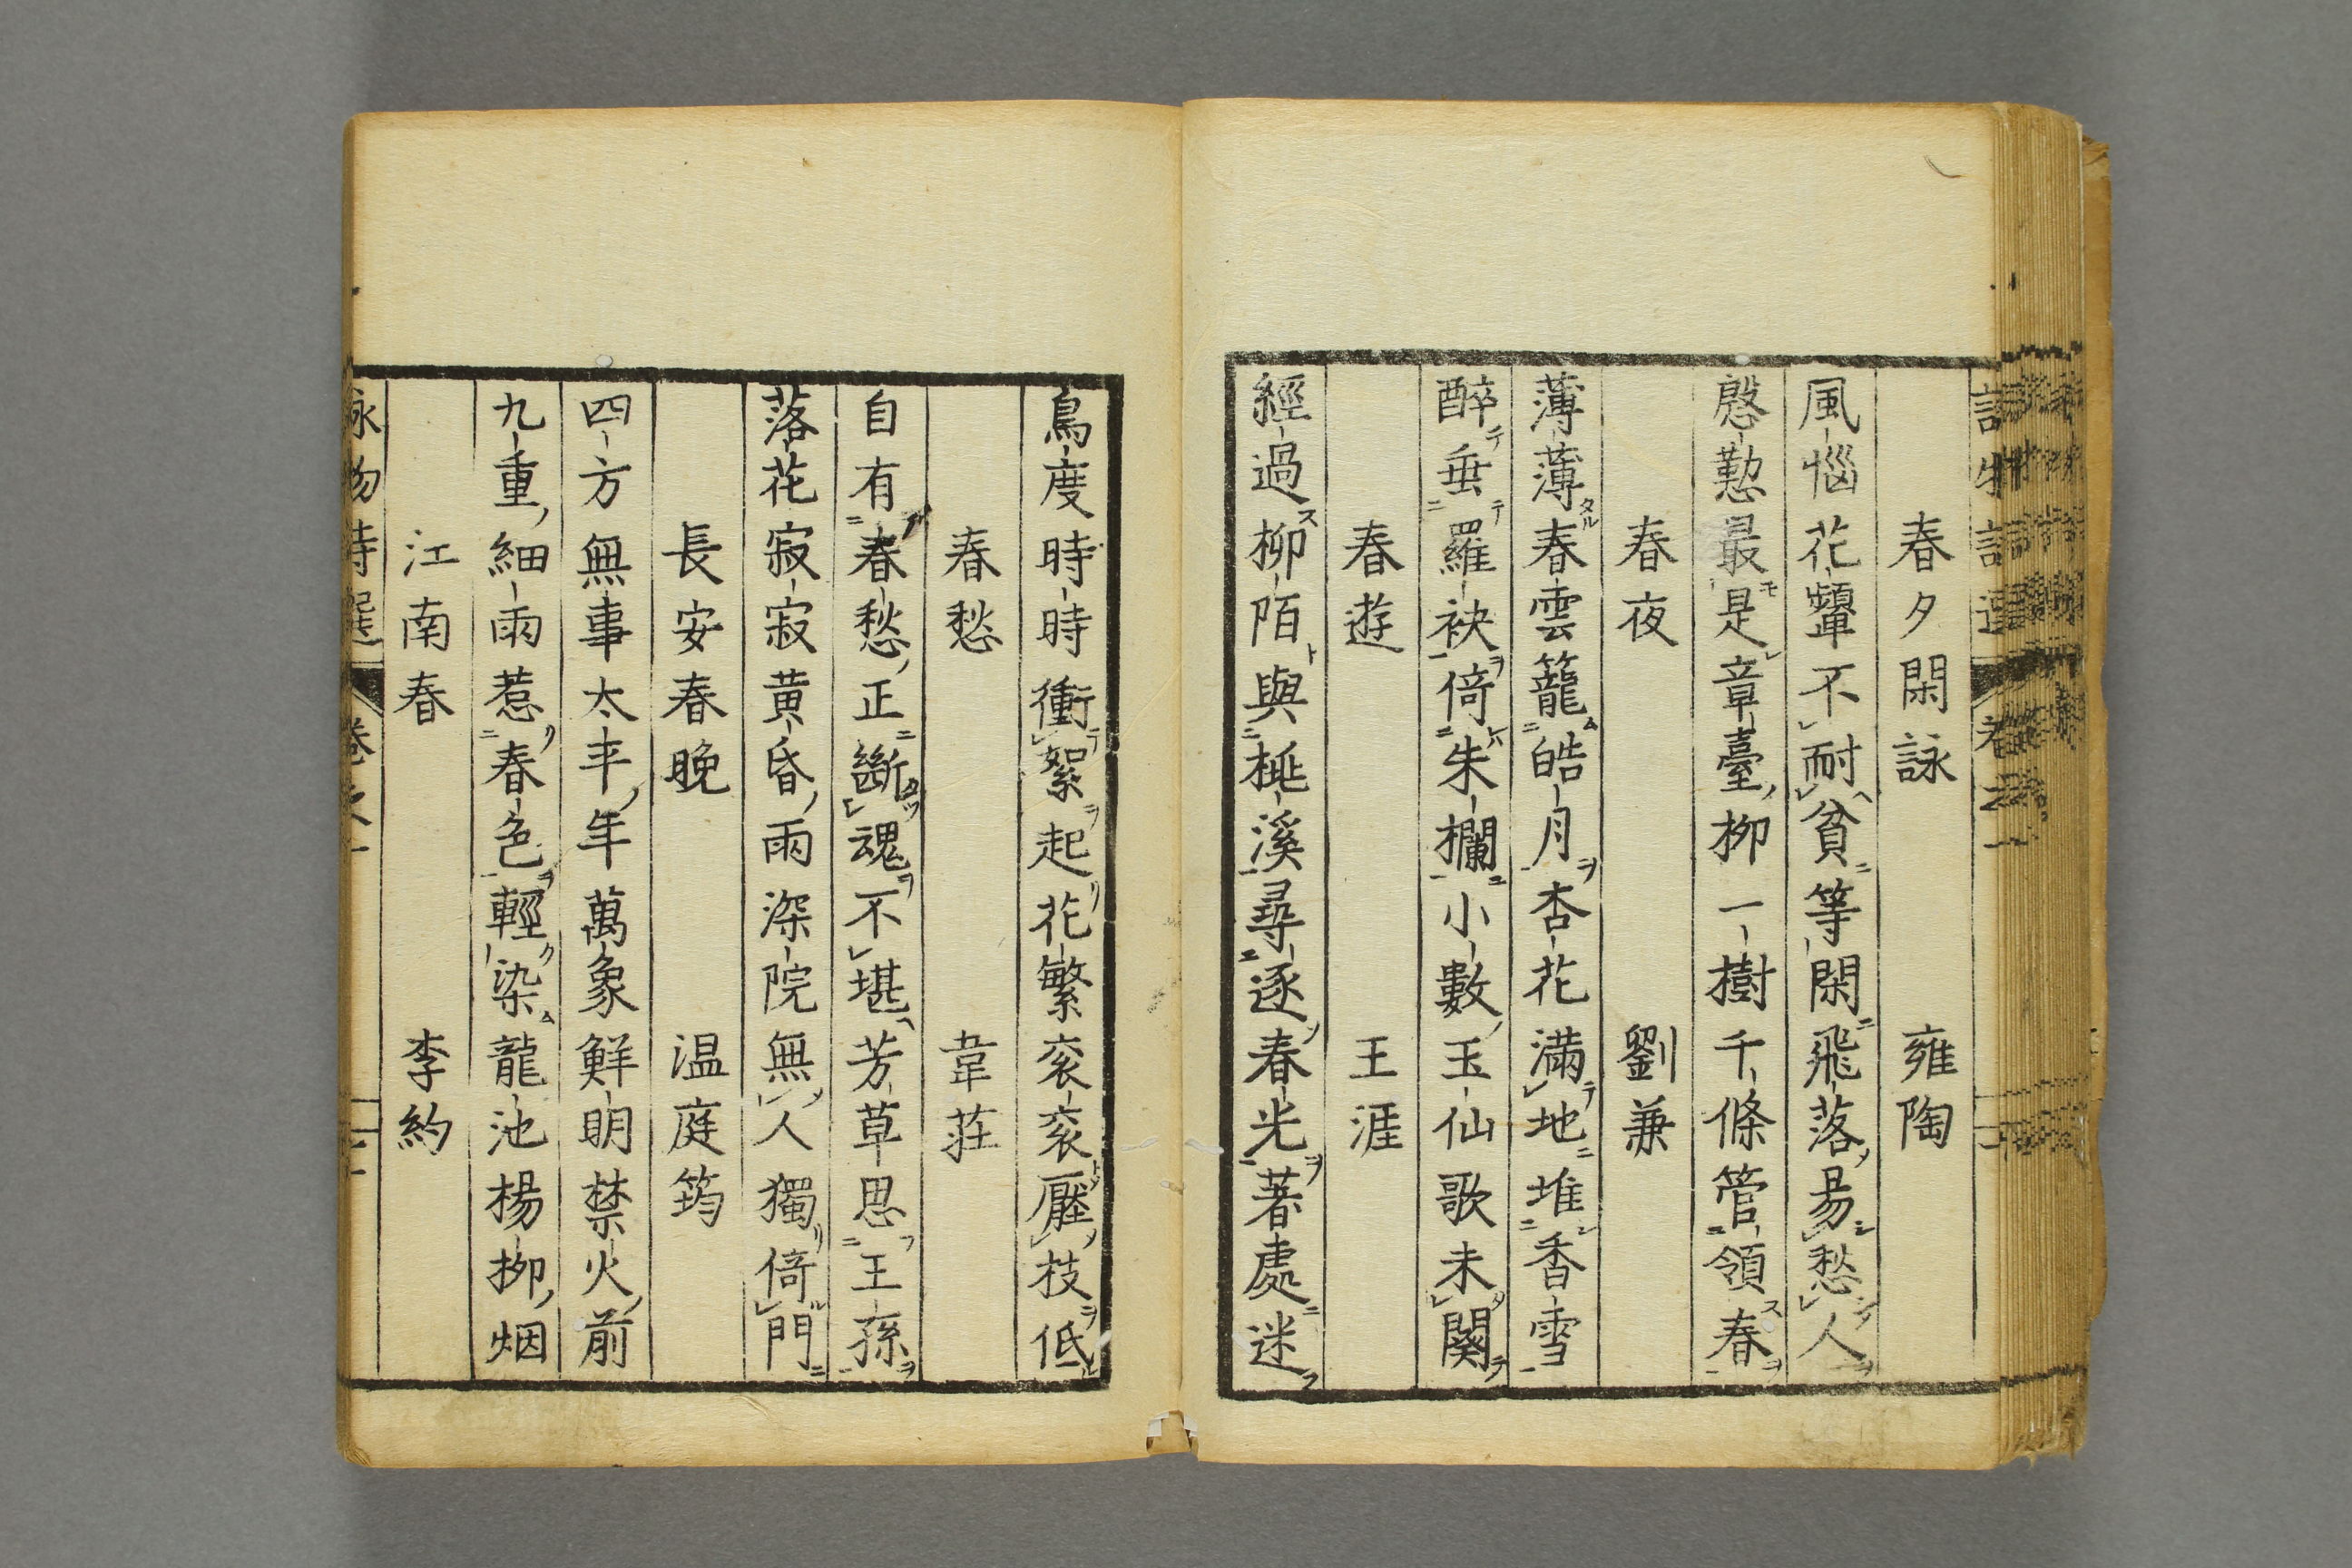 春夕閑詠　雍陶
風惱花顰不耐貧等閑飛落易愁人
慇懃最是章臺柳一樹千條管領春
春夜　劉兼
薄薄春雲籠皓月杏花滿地堆香雪
醉垂羅袂倚朱欄小數玉仙歌未闋
春遊　王涯
經過柳陌與桃溪尋逐春光著處迷
鳥度時時衝絮起花繁衮衮壓枝低
春愁　韋莊
自有春愁正斷魂不堪芳草思王孫
落花寂寂黄昏雨深院無人獨倚門
長安春晚　温庭筠
四方無事太平年萬象鮮明禁火前
九重細雨惹春色輕染龍池楊柳烟
江南春　李約
詠物詩選　卷之一